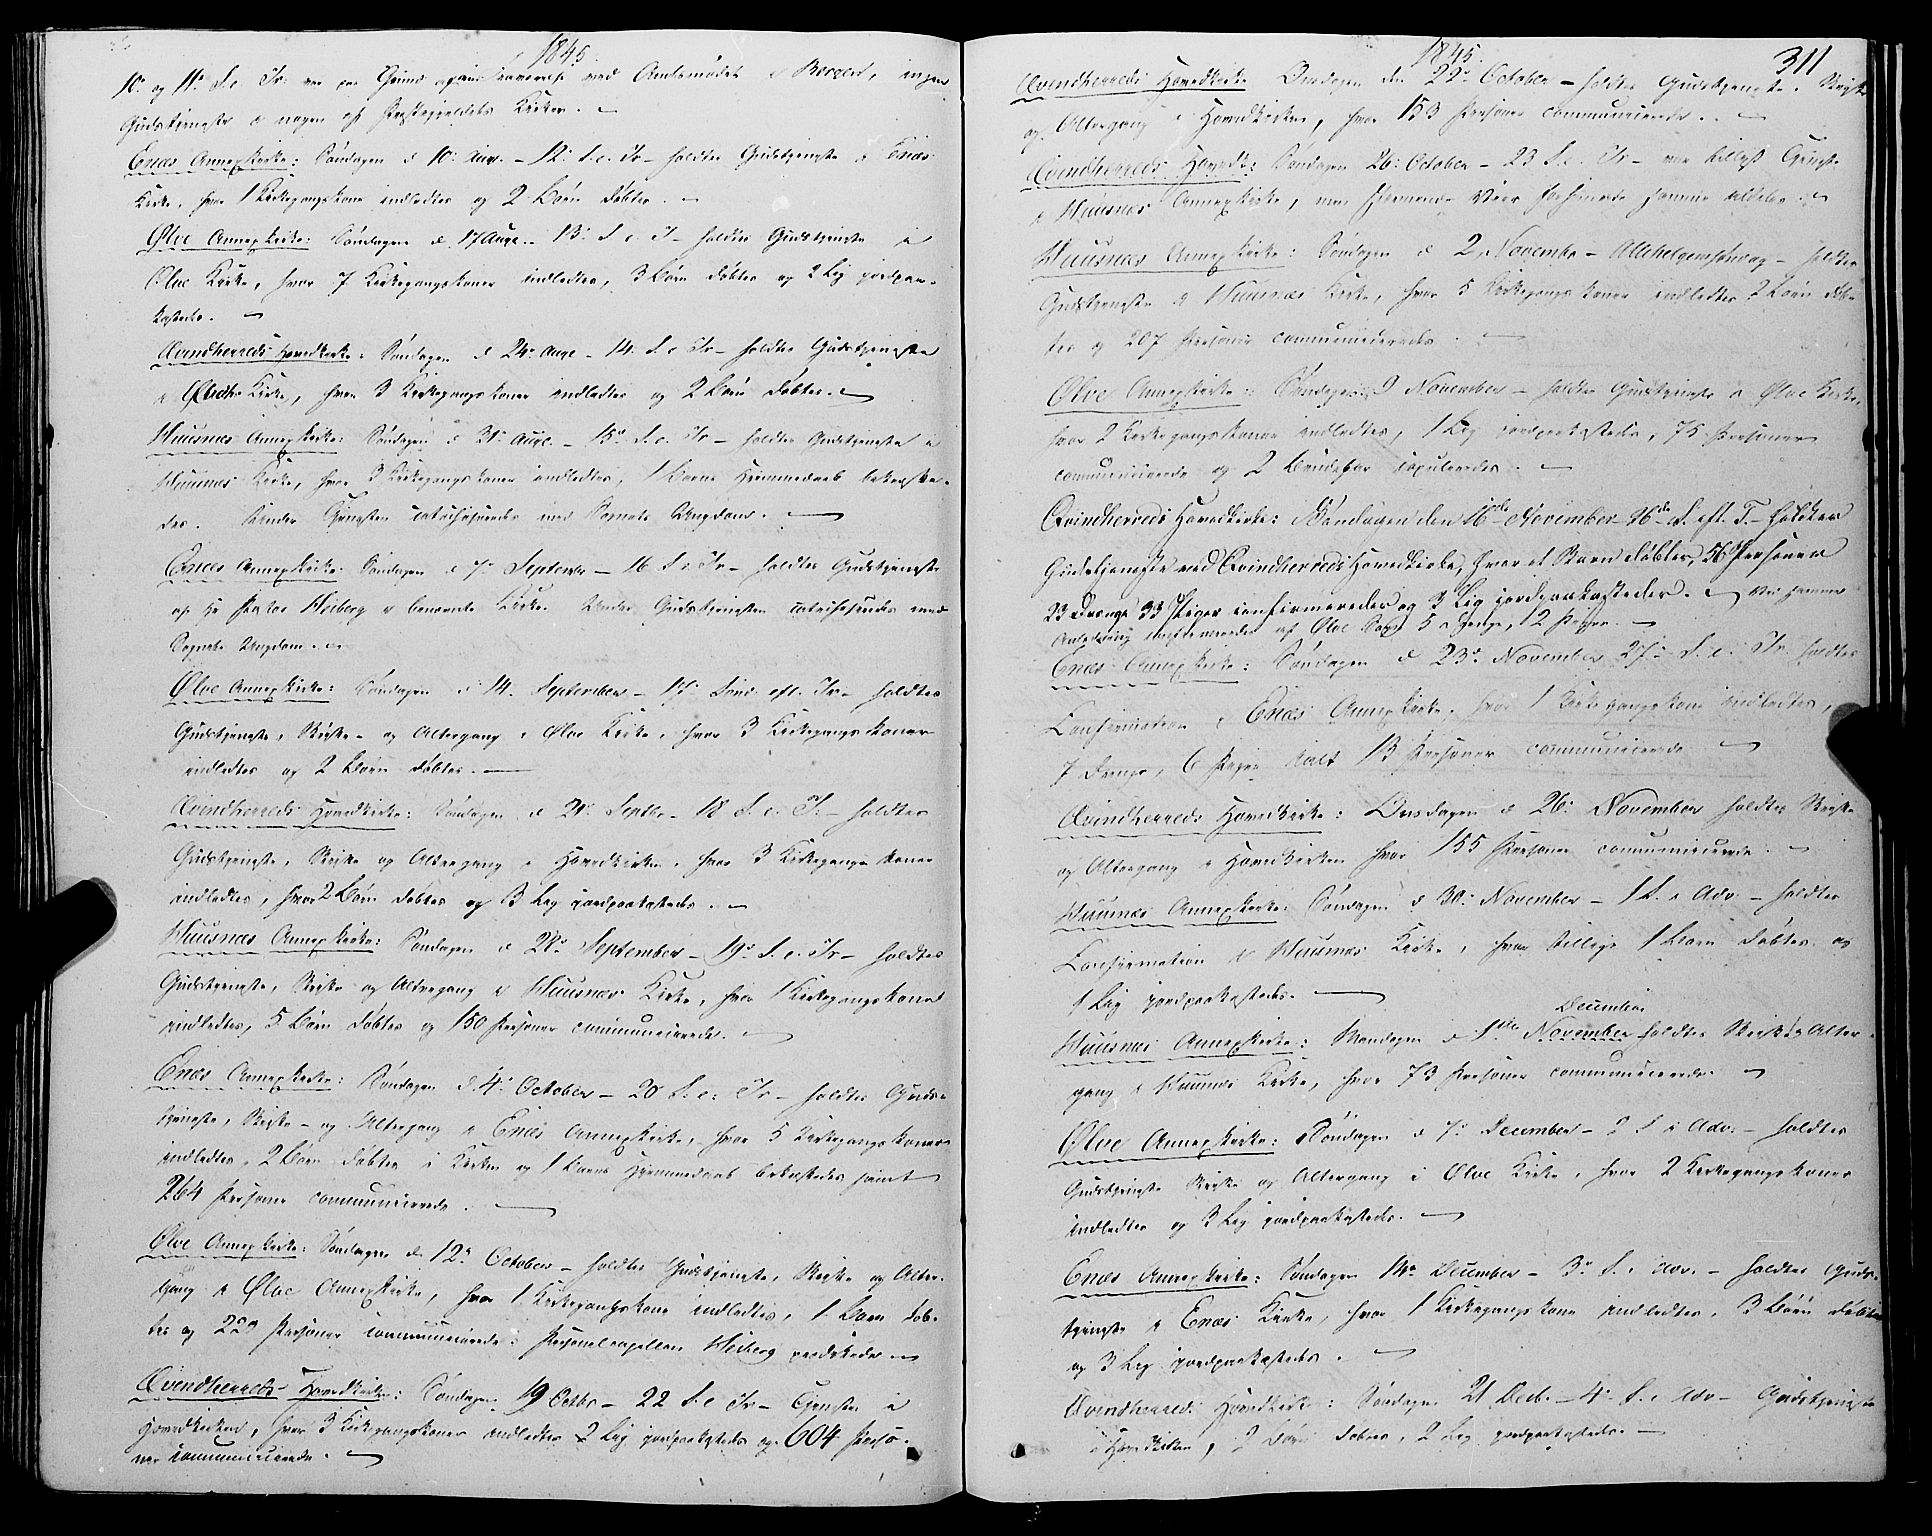 1845.
10. og 11. S. e. Tr. var paa Grund af min Fraværelse ved Amtsmødet i Bergen, ingen
Gudstjeneste i nogen af Præstegjeldets Kirker.
Enæs Annexkirke: Søndagen d 10. Aug. – 12. S. e. Tr – holdtes Gudstjeneste i Enæs
Kirke, hvor 1 Kirkegangskone indledtes og 2 Børn døbtes.
Ølve Annexkirke: Søndagen d. 17 Aug. – 13. S. e. T – holdtes Gudstjeneste i
Ølve Kirke, hvor 7 Kirkegangskoner indledtes, 3 Børn døbtes og 2 Lig jordpaa-
kastedes.
Qvindherreds Hovedkirke: Søndagen d 24. Aug – 14. S. e. Tr – holdtes Gudstjeneste
i Kirke, hvor 3 Kirkegangskoner indledtes og 2 Børn døbtes.
Huusnæs Annexkirke: Søndagen d 31. Aug. – 15. S. e. Tr – holdtes Gudstjeneste i
Huusnæs Kirke, hvor 3 Kirkegangskoner indledtes, 1 Barns Hjemmedaab bekræfte-
des. Under Tjenesten catechiseredes med Sognets Ungdom.
Enæs Annexkirke: Søndagen d 7. September – 16 S. e. Tr – holdtes Gudstjeneste
af Hr Pastor Heiberg i benævnte Kirke. Under Gudstjenesten catechiseredes med
Sognets Ungdom.
Ølve Annexkirke: Søndagen d 14. September – 17. Sønd. eft. Tr – holdtes
Gudstjeneste, Skrifte- og Altergang i Ølve Kirke, hvor 3 Kirkegangskoner
indledtes og 2 Børn døbtes.
Qvindherreds Hovedkirke: Søndagen d 21. Septbr – 18 S. e. Tr – holdtes
Gudstjeneste, Skrifte og Altergang i Hovedkirken, hvor 3 Kirkegangskoner
indledtes, hvor 2 Børn døbtes og 3 Lig jordpaakastedes.
Huusnæs Annexkirke: Søndagen d 28. September – 19. S. e. Tr – holdtes
Gudstjeneste, Skrifte og Altergang i Huusnæs Kirke, hvor 1 Kirkegangskone
indledtes, 5 Børn døbtes og 150 Personer communicerede.
Enæs Annexkirke: Søndagen d. 4. October – 20 S. e. Tr – holdtes Guds-
tjeneste, Skrifte- og Altergang i Enæs Annexkirke, hvor 5 Kirkegangskoner
indledtes, 2 Børn døbtes i Kirken og 1 Barns Hjemmedaab bekræftedes samt
264 Personer communicerede.
Ølve Annexkirke: Søndagen d. 12. October – holdtes Gudstjeneste, Skrifte og Alter-
gang i Ølve Annexkirke, hvor 1 Kirkegangskone indledtes, 1 Barn døb-
tes og 229 Personer communicerede: Personelcapellan Heiberg prædikede
Qvindherreds Hovedkirke: Søndagen 19 Octbr – 22 S. e Tr – Tjeneste i
Hovedkirken, hvor 3 Kirkegangskoner indledtes 2 Lig jordpaakastedes og 604 Perso-
ner communicerede.
1845.
311
Qvindherreds Hovedkirke Onsdagen den 22. October – holdtes Gudstjeneste, Skrifte
og Altergang i Hovedkirken, hvor 153 Personer communicerede.
Qvindherreds Hovedk: Søndagen 26. October – 23 S. e. Tr – var tillyst Tjeneste
i Huusnæs Annexkirke, men Veir forhindrede samme aldeles.
Huusnæs Annexkirke: Søndagen d 2. Novembr – Allehelgensdag – holdtes
Gudstjeneste i Huusnæs Kirke, hvor 5 Kirkegangskoner indledtes 2 Børn døb-
tes og 207 Personer communicerede.
Ølve Annexkirke: Søndagen 9 November – holdtes Gudstjeneste i Ølve Kirke,
hvor 2 Kirkegangskoner indledtes, 1 Lig jordpaakastedes, 75 Personer
communicerede og 2 Brudepar copuleredes.
Qvindherreds Hovedkirke: Søndagen den 16de November 26de S. eft. T. – holdtes
Gudstjeneste ved Qvindherreds Hovedkirke, hvor et Barn døbtes, 56 Personer
23 Drenge 33 Piger confirmeredes og 3 Lig jordpaakastedes. Ved samme
Anledning confirmeredes af Ølve Sogn 5 Drenge, 12 Piger.
Enæs Annexkirke: Søndagen d 23. November 27. S. e. Tr. holdtes
Confirmation i Enæs Annexkirke, hvor 1 Kirkegangskone indledtes,
7 Drenge, 6 Piger ialt 13 Personer communicerede
Qvindherreds Hovedkirke: Onsdagen d 26. November holdtes Skrifte
og Altergang i Hovedkirken hvor 155 Personer communicerede.
Huusnæs Annexkirke: Søndagen d 30. November – 1 S. i Adv – holdtes
Confirmation i Huusnæs Kirke, hvor tillige 1 Barn døbtes og
1 Lig jordpaakastedes.
December
Huusnæs Annexkirke: Mandagen d 1ste November holdtes Skrifte & Alter-
gang i Huusnæs Kirke, hvor 73 Personer communicerede.
Ølve Annexkirke: Søndagen d 7. December – 2 S i Adv. – holdtes
Gudstjeneste Skrifte og Altergang i Ølve Kirke, hvor 2 Kirkegangskoner
indledtes og 3 Lig jordpaakastedes.
Enæs Annexkirke: Søndagen 14. December – 3. S. i Adv. – holdtes Guds-
tjeneste i Enæs Kirke, hvor 1 Kirkegangskone indledtes, 3 Børn døbtes
og 3 Lig jordpaakastedes.
Qvindherreds Hovedkirke: Søndagen 21 Decb. – 4. S. i Adv – Gudstjeneste
i Hovedkirken, 2 Børn døbtes, 2 Lig jordpaakastedes.